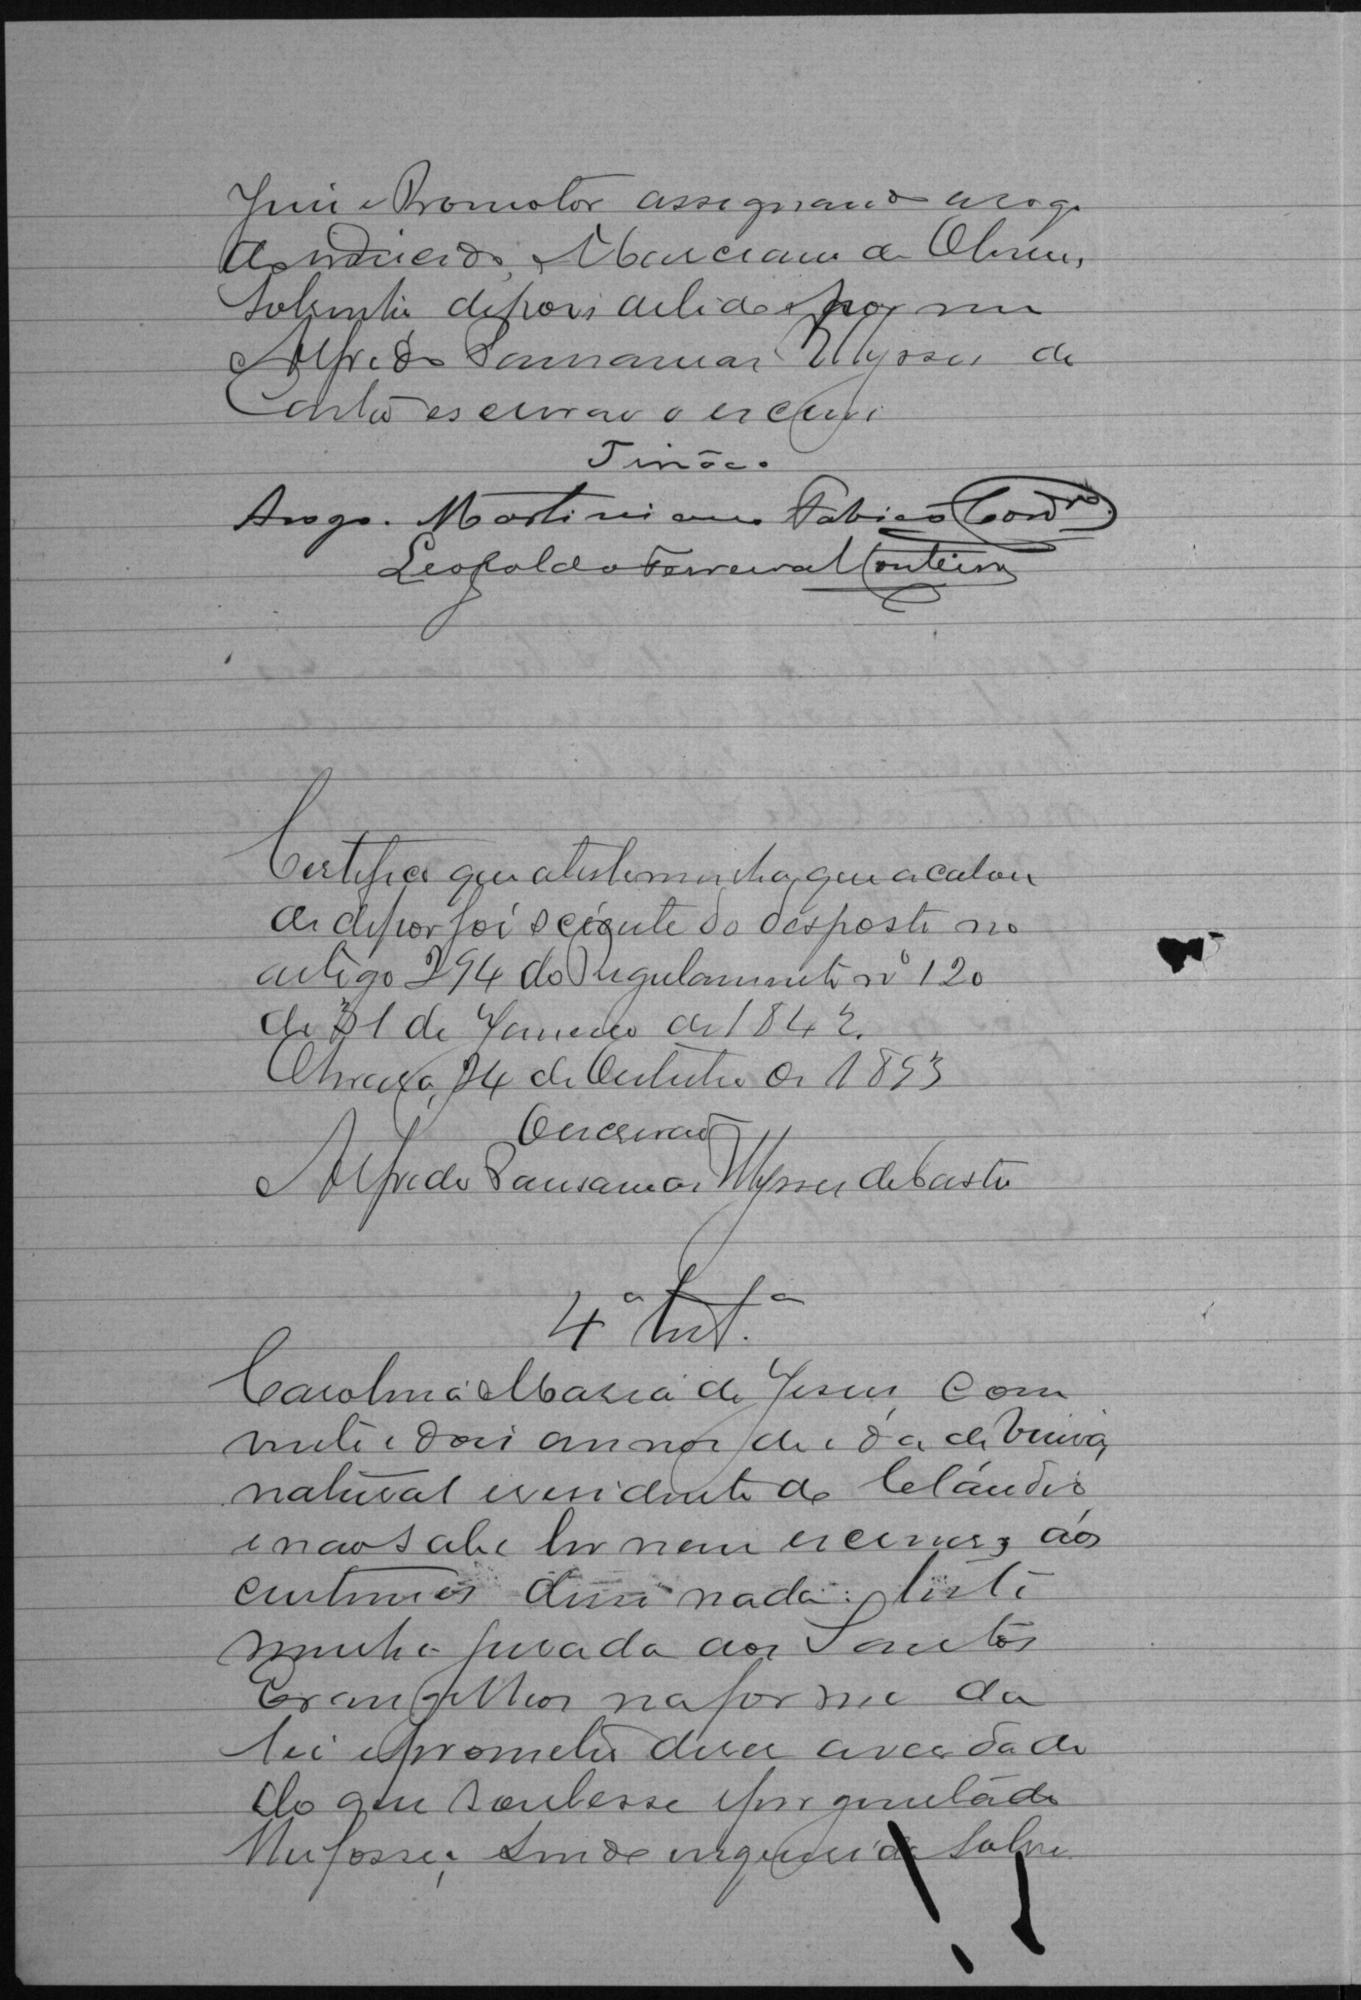 Juiz e Promotor assignando arogo
do indiciado, Marciano de Oliveira,
Sobrinho depois de lido por mim
Alfredo Pausanias Ulysses de
Castro escrivão o escrevi
Tinôco.
Arogo. Martiniano Fabião Cordro.
Leopoldo Ferreira Monteiro
Certifico que a testemunha que acabou
de depor foi sciente do desposto no
artigo 294 do Regulamento nº 120
de 31 de Janeiro de 1842.
Oliveira, 24 de Outubro de 1893
O escrivão
Alfredo Pausanias Ulysses de Castro
4ª Test.ª
Carolina Maria de Jesus, com
vinte e dois annos de idade viuva,
natural e residente do Cláudio,
e não sabe ler nem escrever; aos
custumes disse nada; teste
munha jurada aos Santos
Evangelhos na forma da
lei e prometteu dizer a verdade
do que soubesse e perguntado
lhe fosse; e sendo inquerida sobre